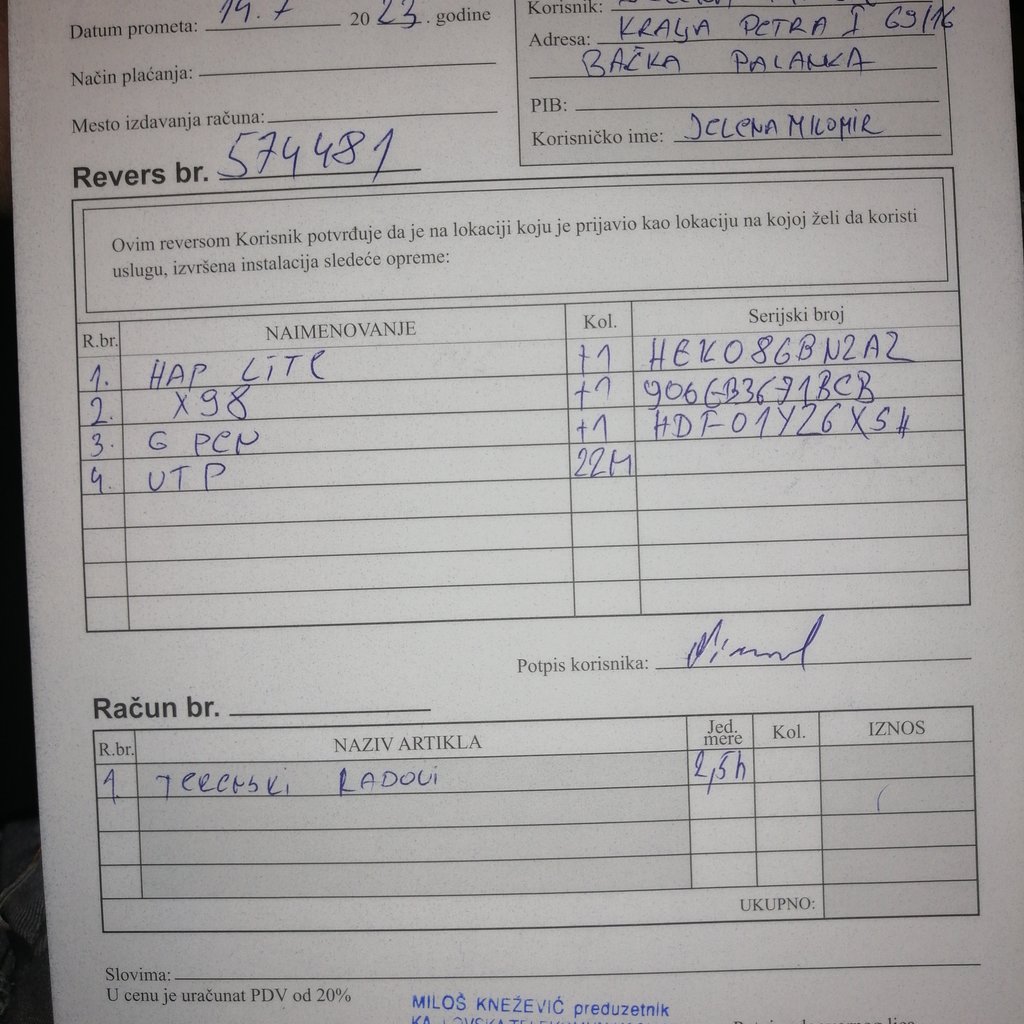 Datum prometa: 14.7 2023. godine
Korisnik:
Adresa: KRALJA PETRA I 69/16
BAČKA PALANKA
Način plaćanja:
PIB:
Mesto izdavanja računa:
Korisničko ime: JELENAMILOMIR
Revers br. 574481
Ovim reversom Korisnik potvrđuje da je na lokaciji koju je prijavio kao lokaciju na kojoj želi da koristi
uslugu, izvršena instalacija sledeće opreme:
R.br. NAIMENOVANJE Kol. Serijski broj
1. HAP LITE +1 HEK08GBN2AZ
2. X98 +1 906GB3671BCB
3. G PEN +1 HDF01YZ6XSH
4. UTP 22M
Potpis korisnika:
Račun br.
R.br. NAZIV ARTIKLA Jed. mere Kol. IZNOS
1 TERENSKI RADOVI 2,5h
UKUPNO:
Slovima:
U cenu je uračunat PDV od 20%
MILOŠ KNEŽEVIĆ preduzetnik